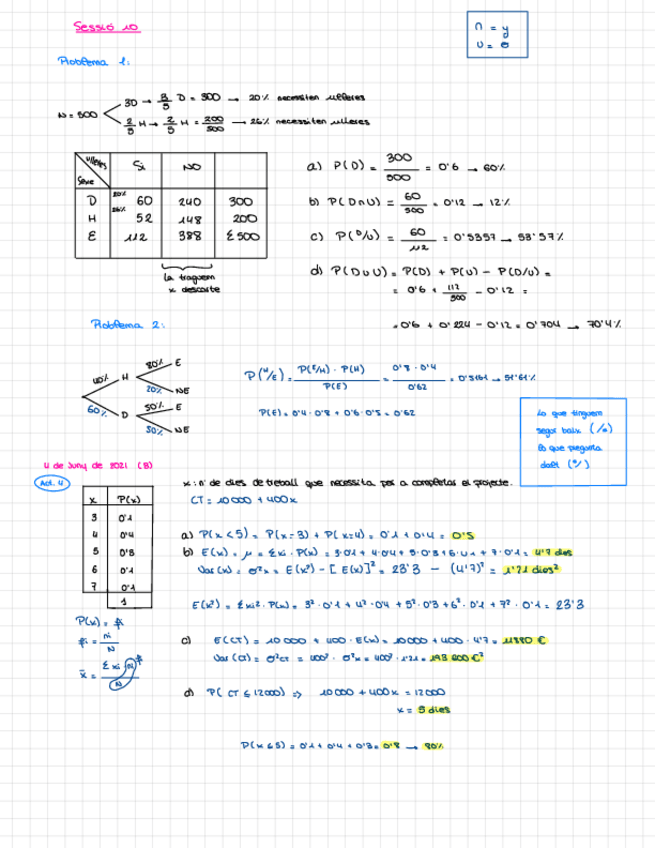 Sessió 10
∩ = y
∪ = o
Problema 1:
N = 500
3D → 3/5 D = 300 → 20% necessiten ulleres
2/5 H → 2/5 H = 200/500 → 26% necessiten ulleres
Ulleres
Sexe
Si NO
D 20% 60 240 300
H 26% 52 148 200
Σ 112 388 Σ500
la traguem x descarte
a) P(D) = 300/500 = 0'6 → 60%
b) P(D∩U) = 60/500 = 0'12 → 12%
c) P(D/U) = 60/112 = 0'5357 → 53'57%
d) P(D∪U) = P(D) + P(U) - P(D/U) =
= 0'6 + 112/500 - 0'12 =
= 0'6 + 0'224 - 0'12 = 0'704 → 70'4%
Problema 2:
40% H 80% E
20% NE
60% D 50% E
50% NE
P(H/E) = P(E/H) · P(H) / P(E) = 0'8 · 0'4 / 0'62 = 0'5161 → 51'61%
P(E) = 0'4 · 0'8 + 0'6 · 0'5 = 0'62
Lo que tinguem
segur baix (/o)
lo que pregunta
dalt (o/)
4 de Juny de 2021 (B)
Act. 4
x P(x)
3 0'1
4 0'4
5 0'3
6 0'1
7 0'1
1
P(x) = fi
fi = ni/N
x̄ = Σ xi ni / N
x: nº de dies de treball que necessita per a completar el projecte.
CT = 10000 + 400x
a) P(x < 5) = P(x=3) + P(x=4) = 0'1 + 0'4 = 0'5
b) E(x) = μ = Σxi · P(x) = 3·0'1 + 4·0'4 + 5·0'3 + 6·0'1 + 7·0'1 = 4'7 dies
Var(x) = σ²x = E(x²) - [E(x)]² = 23'3 - (4'7)² = 1'21 dies²
E(x²) = Σxi² · P(x) = 3² · 0'1 + 4² · 0'4 + 5² · 0'3 + 6² · 0'1 + 7² · 0'1 = 23'3
c) E(CT) = 10000 + 400 · E(x) = 10000 + 400 · 4'7 = 11880 €
Var(CT) = σ²CT = 400² · σ²x = 400² · 1'21 = 193 600 €²
d) P(CT ≤ 12000) ⇒ 10000 + 400x = 12000
x = 5 dies
P(x ≤ 5) = 0'1 + 0'4 + 0'3 = 0'8 → 80%